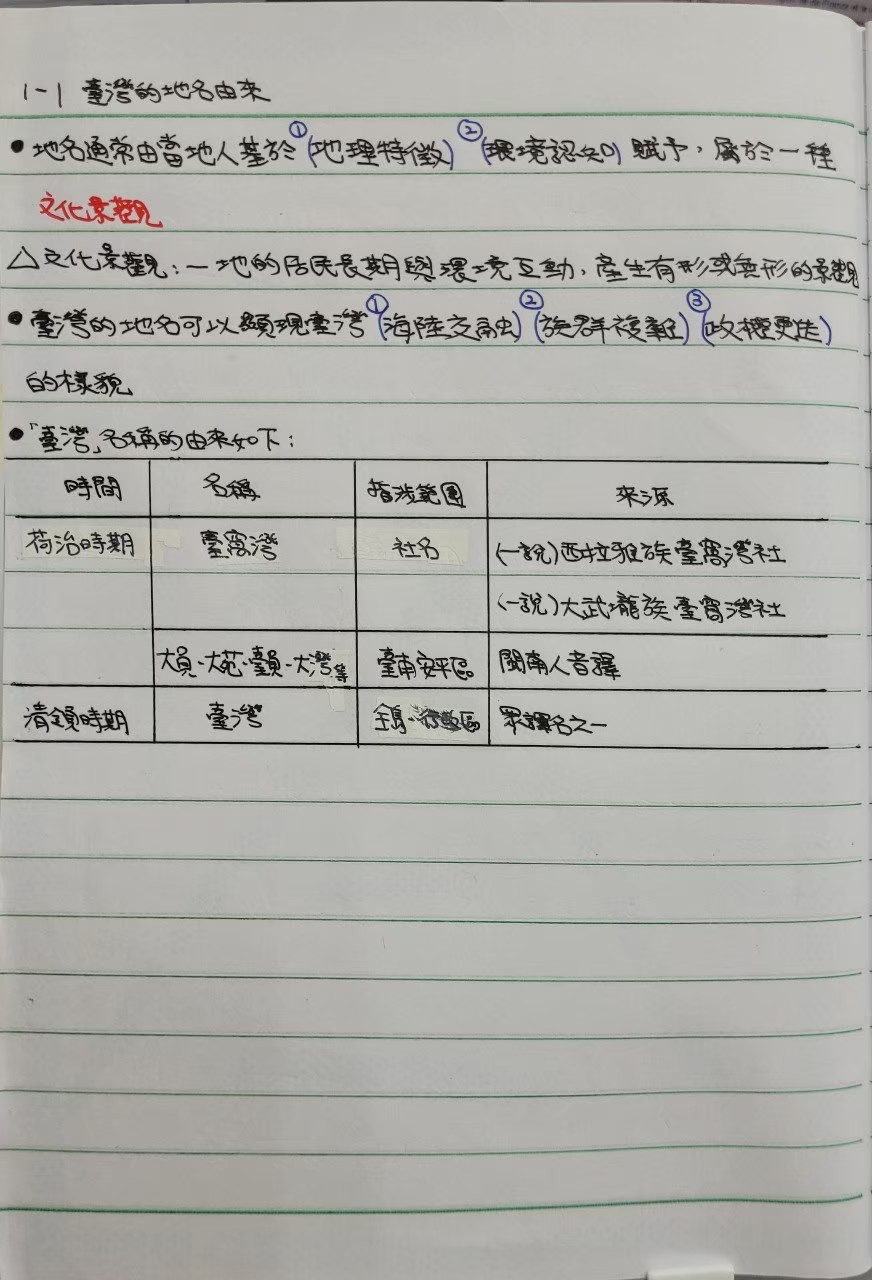 1-1 臺灣的地名由來
●地名通常由當地人基於①(地理特徵)②(環境認知)賦予,屬於一種
文化景觀
△文化景觀:一地的居民長期與環境互動,產生有形或無形的景觀
●臺灣的地名可以顯現臺灣①(海陸交融)②(族群複雜)③(政權更迭)
的樣貌
●「臺灣」名稱的由來如下:
時間 名稱 指涉範圍 來源
荷治時期 臺窩灣 社名 (一說)西拉雅族臺窩灣社
(一說)大武壠族臺窩灣社
大員、大苑、臺員、大灣等 臺南安平區 閩南人音譯
清領時期 臺灣 全島、行政區 眾譯名之一